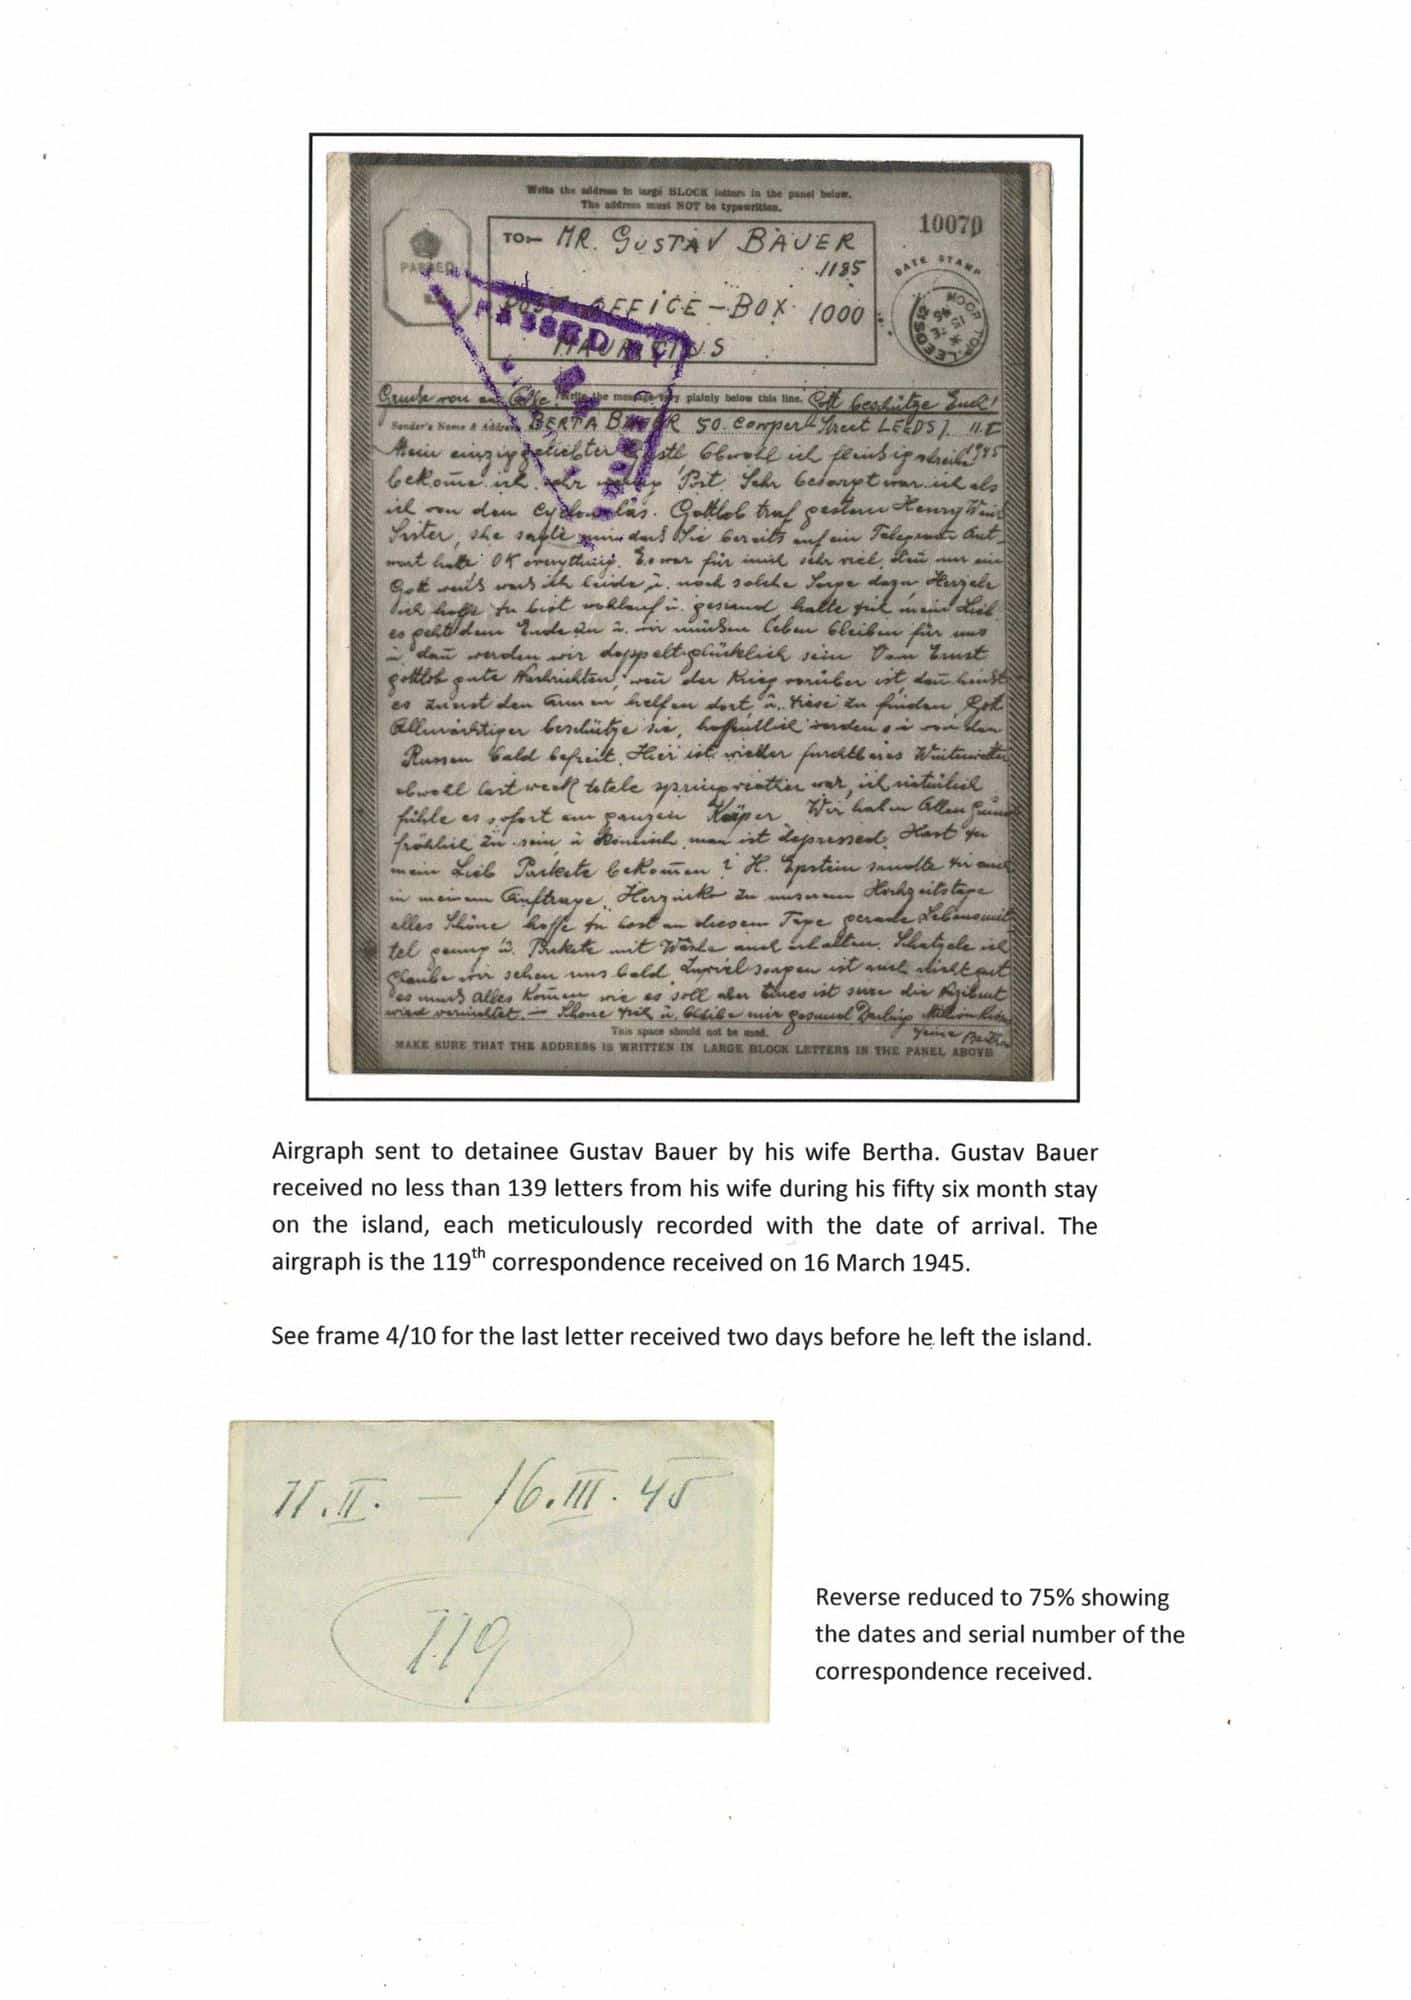 Write the address in large BLOCK letters in the panel below.
The address must NOT be typewritten.
10070
TO:— MR. GUSTAV BAUER
1185
POST OFFICE – BOX 1000
MAURITIUS
PASSED
DATE STAMP
MOOR TOP. LEEDS 12
PASSED BY
Grüsse von Write the message very plainly below this line. Gott beschütze Euch!
Sender's Name & Address BERTA BAUER 50. Cowper Street LEEDS 7. 11.II
1945
Mein einziggeliebter Gustl Obwohl ich fleissig schreibe
bekom̄e ich sehr wenig Post. Sehr besorgt war ich als
ich von den Cyclon las. Gottlob traf gestern Henry
Sister, she sagte mir dass Sie bereits auf ein Telegram Ant-
wort hatte OK everything. Es war für mich sehr viel, den̄ nur ein
Gott weiss was ich leide u. noch solche Sorge dazu, Herzele
ich hoffe Du bist wohlauf u. gesund, halte Dich mein Lieb
es geht dem Ende zu u. wir müssen leben bleiben für uns
u. dan̄ werden wir doppelt glücklich sein Vom Ernst
gottlob gute Nachrichten, wen̄ der Krieg vorüber ist, dan̄ heisst
es zuerst den Armen helfen dort u. diese zu finden, Gott
Allmächtiger beschütze sie, hoffentlich werden sie von den
Russen bald befreit. Hier ist wieder furchtbares Winterwetter
obwohl last week totale springweather war, ich natürlich
fühle es sofort am ganzen Körper Wir haben Allen Grund
fröhlich zu sein, u. komisch man ist depressed. Hast Du
mein Lieb Pakete bekom̄en? H. Epstein sandte Dir auch
in meinem Auftrage. Herzicko zu unserem Hochzeitstage
alles Schöne hoffe Du hast an diesem Tage gerade Lebensmit
tel genug u. Pakete mit Wäsche auch erhalten. Schatzele ich
glaube wir sehen uns bald. Zuviel sorgen ist auch nicht gut
es muss alles kom̄en wie es soll aber Eines ist sure die
wird vernichtet. — Schone Dich u. bleibe mir gesund Darling Million Küsse
Deine Bertha
This space should not be used.
MAKE SURE THAT THE ADDRESS IS WRITTEN IN LARGE BLOCK LETTERS IN THE PANEL ABOVE
Airgraph sent to detainee Gustav Bauer by his wife Bertha. Gustav Bauer
received no less than 139 letters from his wife during his fifty six month stay
on the island, each meticulously recorded with the date of arrival. The
airgraph is the 119th correspondence received on 16 March 1945.
See frame 4/10 for the last letter received two days before he left the island.
11.II. — 16.III.45
119
Reverse reduced to 75% showing
the dates and serial number of the
correspondence received.